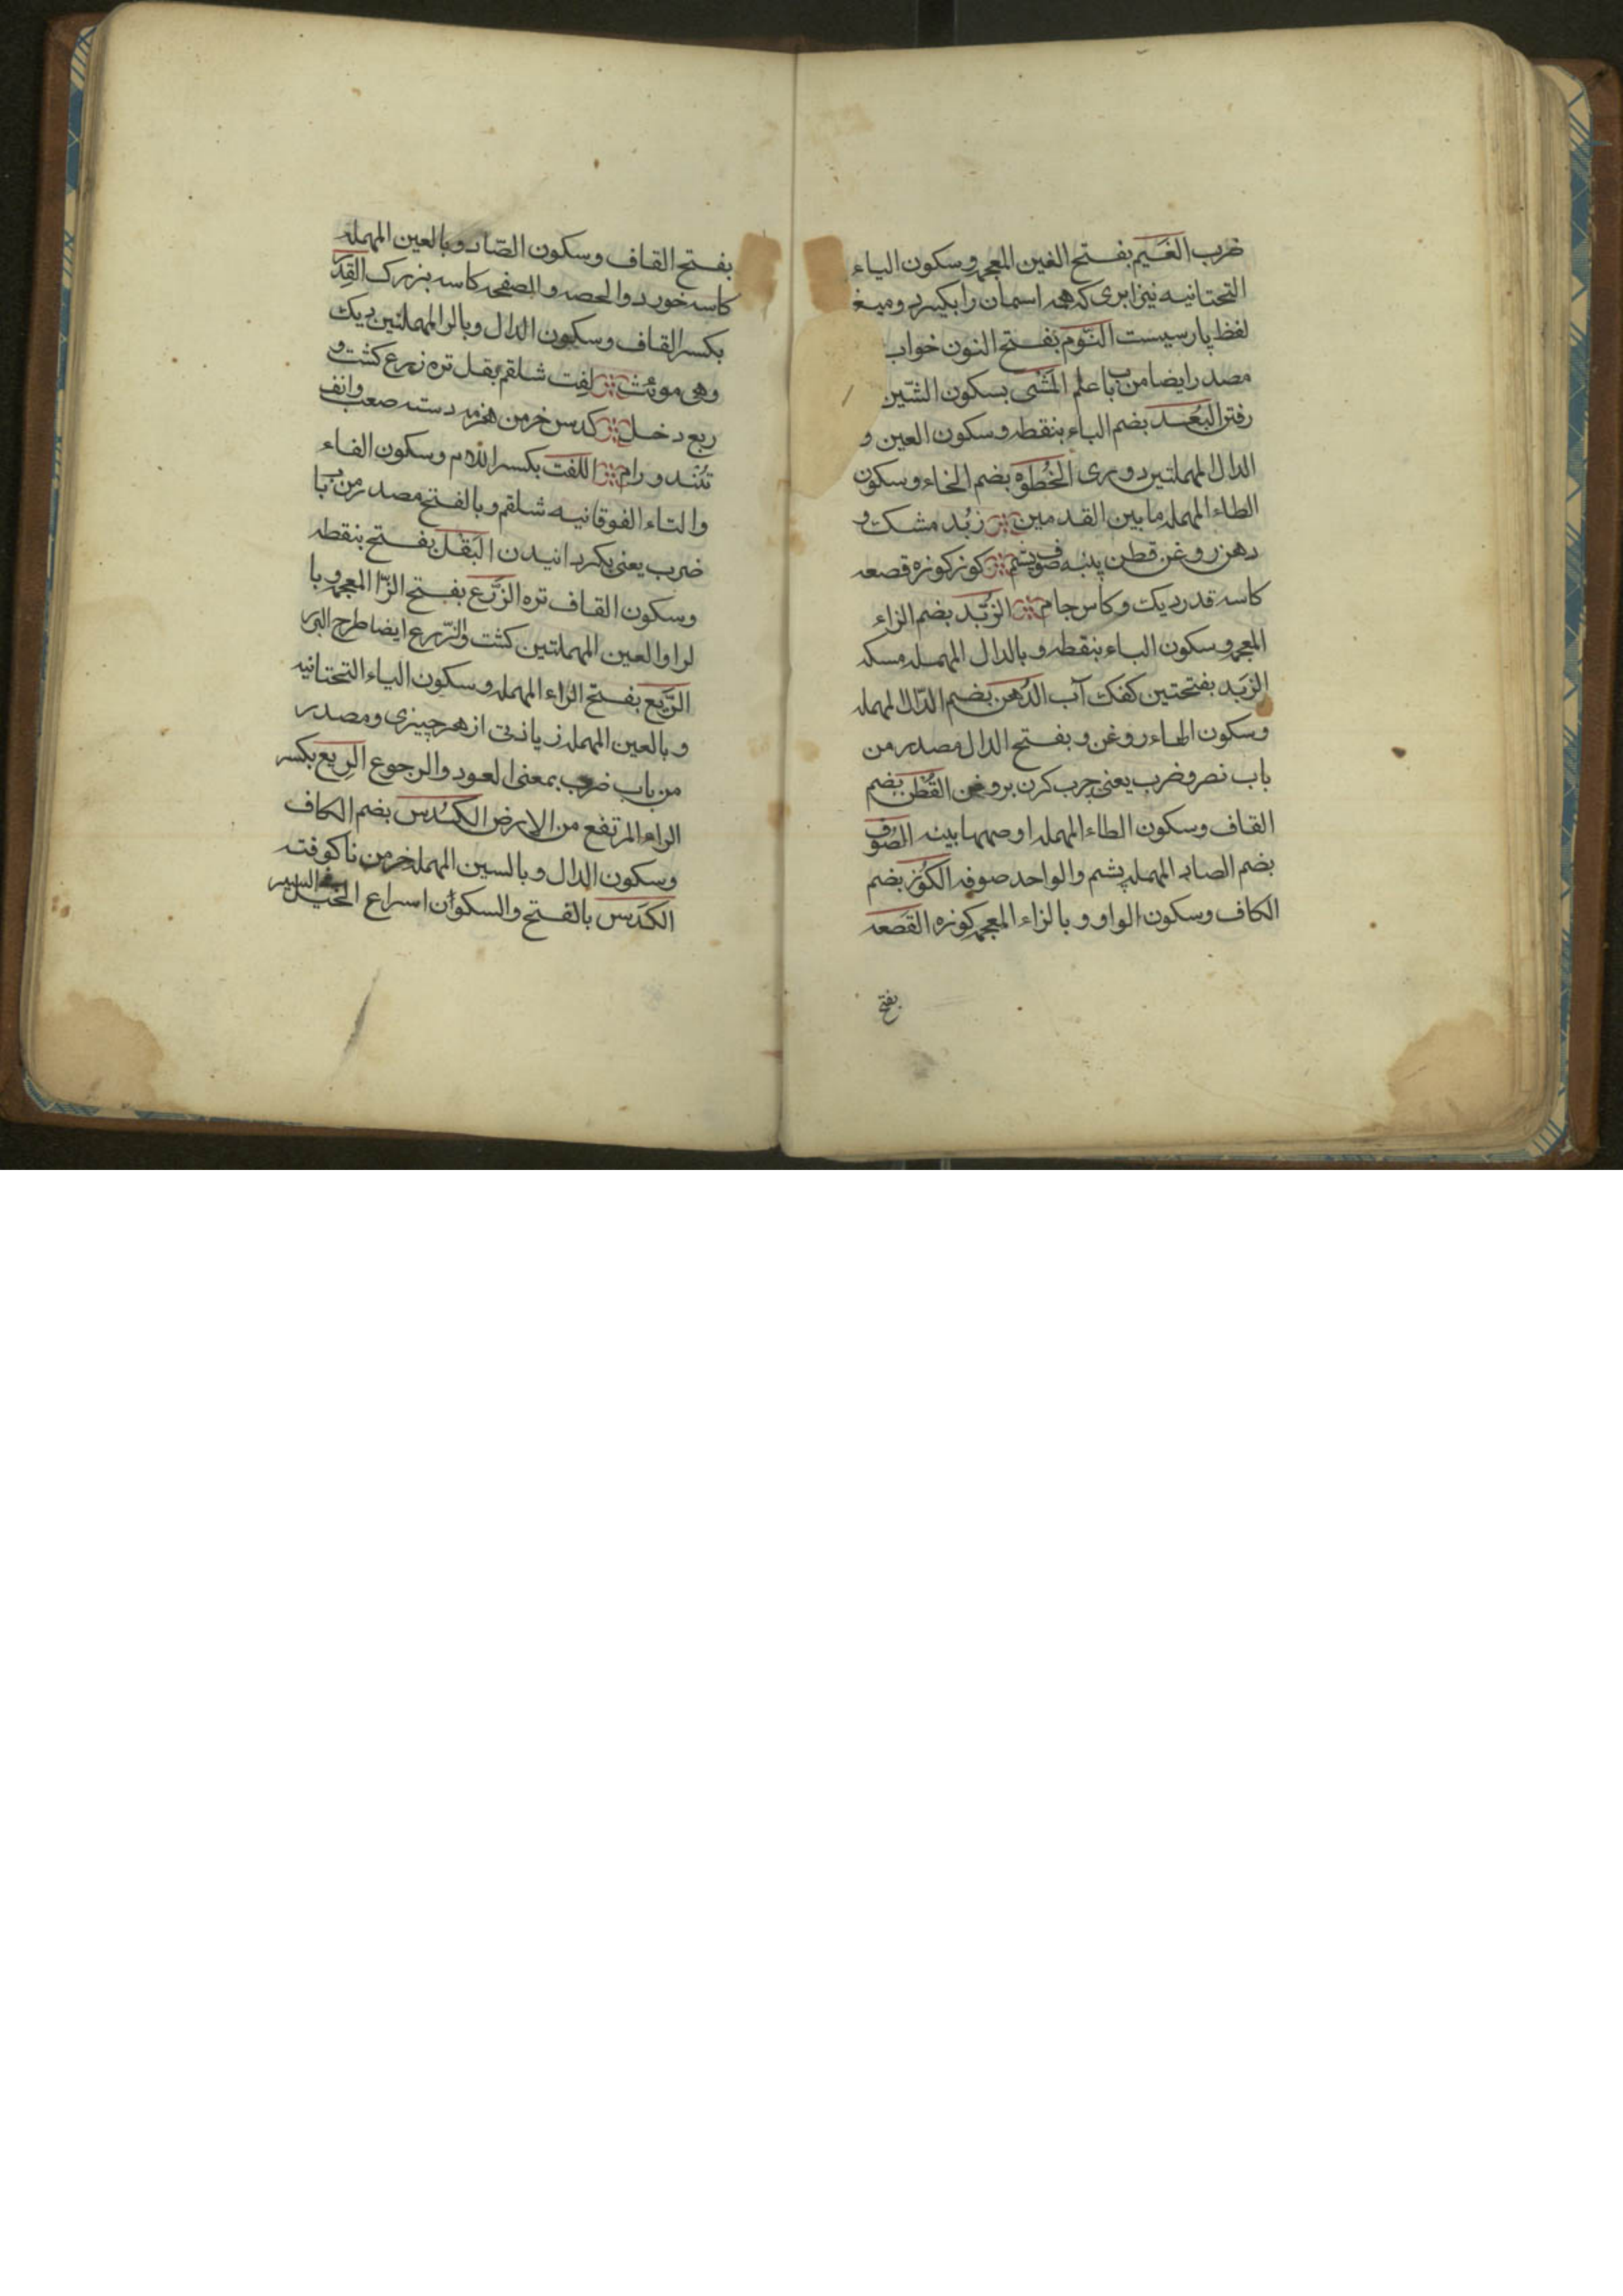 ضرب الغَيم بفـتح الغين المعجمه وسكون الياء
التحتانيه نيز ابری كه همه اسمان را بكيرد وميغ
لفظ پارسيست النّوم بفتح النون خواب
مصدر ايضا من باب علم المَشْی بسكون الشّين
رفتن البُعـد بضم الباء بنقطه وسكون العين و
الدال المهملتين دوری الخُطوَه بضم الخاء وسكون
الطاء المهمله ما بين القدمين زبُد مشكه و
دهن روغن قطن پنبه صوف پشم كوز كوزه قصعه
كاسه قدر ديك وكاس جام الزُبد بضم الزاء
المعجمه وسكون الباء بنقطه وبالدال المهمله مسكه
الزَبَد بفتحتين كفك آب الدُهن بضم الدّال المهمله
وسكون الهاء روغن وبفتح الدال مصدر من
باب نصر وضرب يعنی چرب كردن بروغن القُطن بضم
القاف وسكون الطاء المهمله او ضمهما پنبه الصُوف
بضم الصاد المهمله پشم والواحد صوفه الكُوز بضم
الكاف وسكون الواو و بالزاء المعجمه كوزه القصعه
بفتح
بفـتح القاف وسكون الصّاد وبالعين المهمله
كاسه خورد والصفحه كاسه بزرك القِدر
بكسر القاف وسكون الدال وبالرا المهملتين ديك
وهی مونث لِفت شلقم بقل تره زرع كشت و
ريع دخـل كدس خرمن حزمه دسته صعب وانف
تُنـد ورام اللفت بكسر اللام وسكون الفاء
والتاء الفوقانيه شلقم وبالفتح مصدر من باب
ضرب يعنی بكردانيدن البَقْل بفتح بنقطه
وسكون القاف تره الزَرْع بفتح الزّا المعجمه وبا
لرا والعين المهملتين كشت والزّرع ايضا طرح البزر
الرَّيع بفـتح الراء المهمله وسكون الياء التحتانيه
وبالعين المهمله زيادتی از هر چيزی ومصدر
من باب ضرب بمعنی العود والرجوع الرِيع بكسر
الراء المرتفع من الارض الكُدس بضم الكاف
وسكون الدال وبالسين المهمله خرمن ناكوفته
الكَدس بالفـتح والسكون اسراع الخيل فی السير